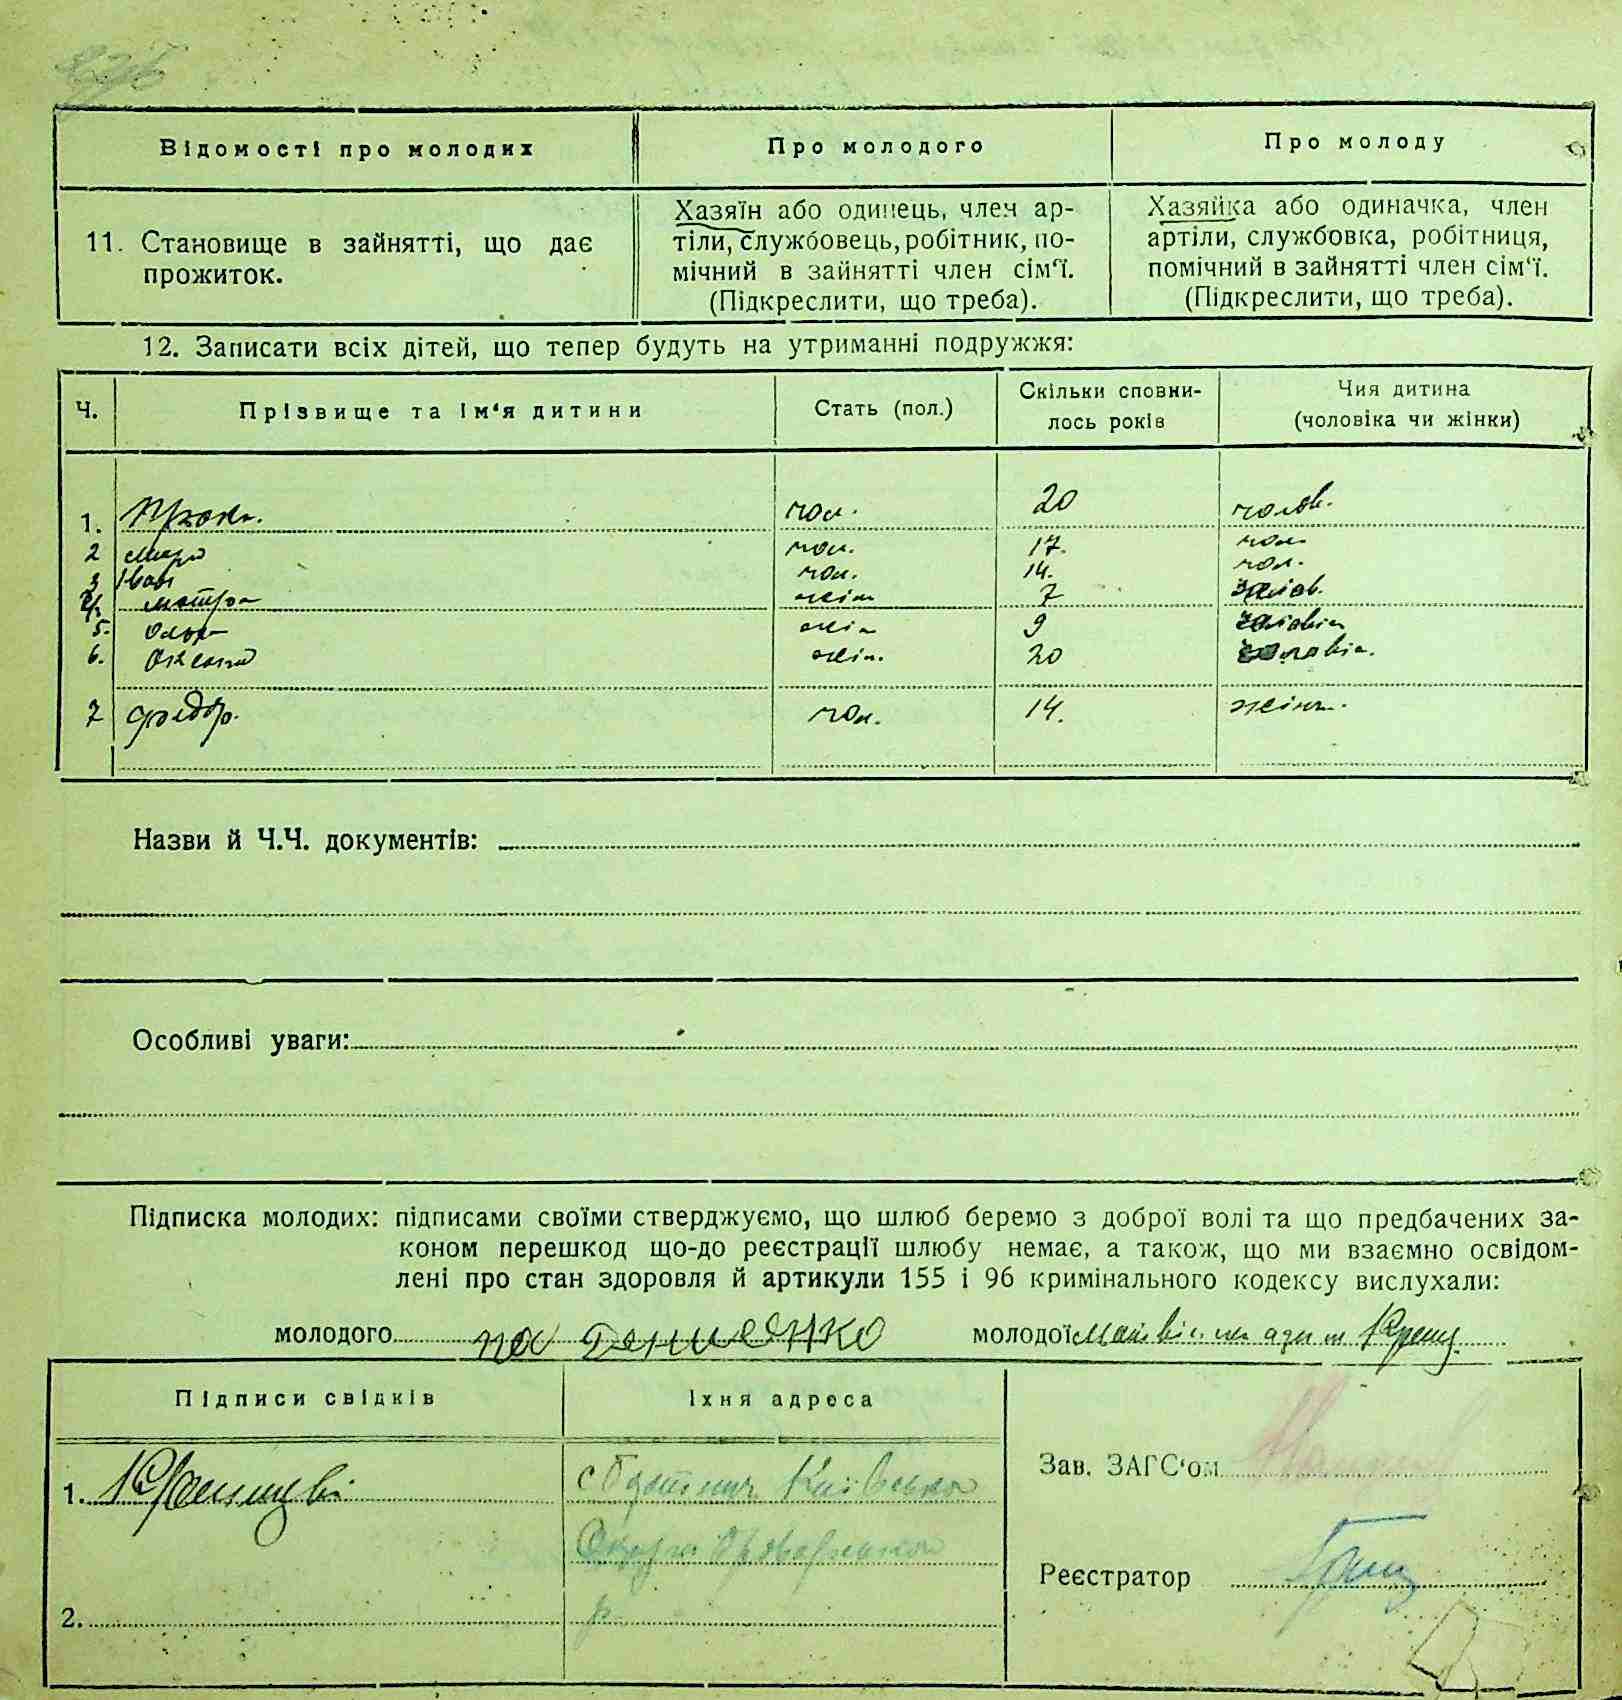 Відомості про молодих
Про молодого
Про молоду
11. Становище в зайнятті, що дає
прожиток.
Хазяїн або одинець, член ар-
тіли, службовець, робітник, по-
мічний в зайнятті член сім'ї.
(Підкреслити, що треба).
Хазяйка або одиначка, член
артіли, службовка, робітниця,
помічний в зайнятті член сім'ї.
(Підкреслити, що треба).
12. Записати всіх дітей, що тепер будуть на утриманні подружжя:
Ч.
Прізвище та ім'я дитини
Стать (пол.)
Скільки сповни-
лось років
Чия дитина
(чоловіка чи жінки)
1. чол. 20 чолов.
2 чол. 17. чол.
3 Іван чол. 14. чол.
4. мотря жін 7 чолов.
5. Ольга жін 9 чоловік
6. Оксана жін. 20 чоловік.
7 федор. чол. 14. жінк.
Назви й Ч.Ч. документів:
Особливі уваги:
Підписка молодих: підписами своїми стверджуємо, що шлюб беремо з доброї волі та що предбачених за-
коном перешкод що-до реєстрації шлюбу немає, а також, що ми взаємно освідом-
лені про стан здоровля й артикули 155 і 96 кримінального кодексу вислухали:
молодого
молодої
Підписи свідків
Їхня адреса
1.
Київська
2.
р.
Зав. ЗАГС'ом
Реєстратор